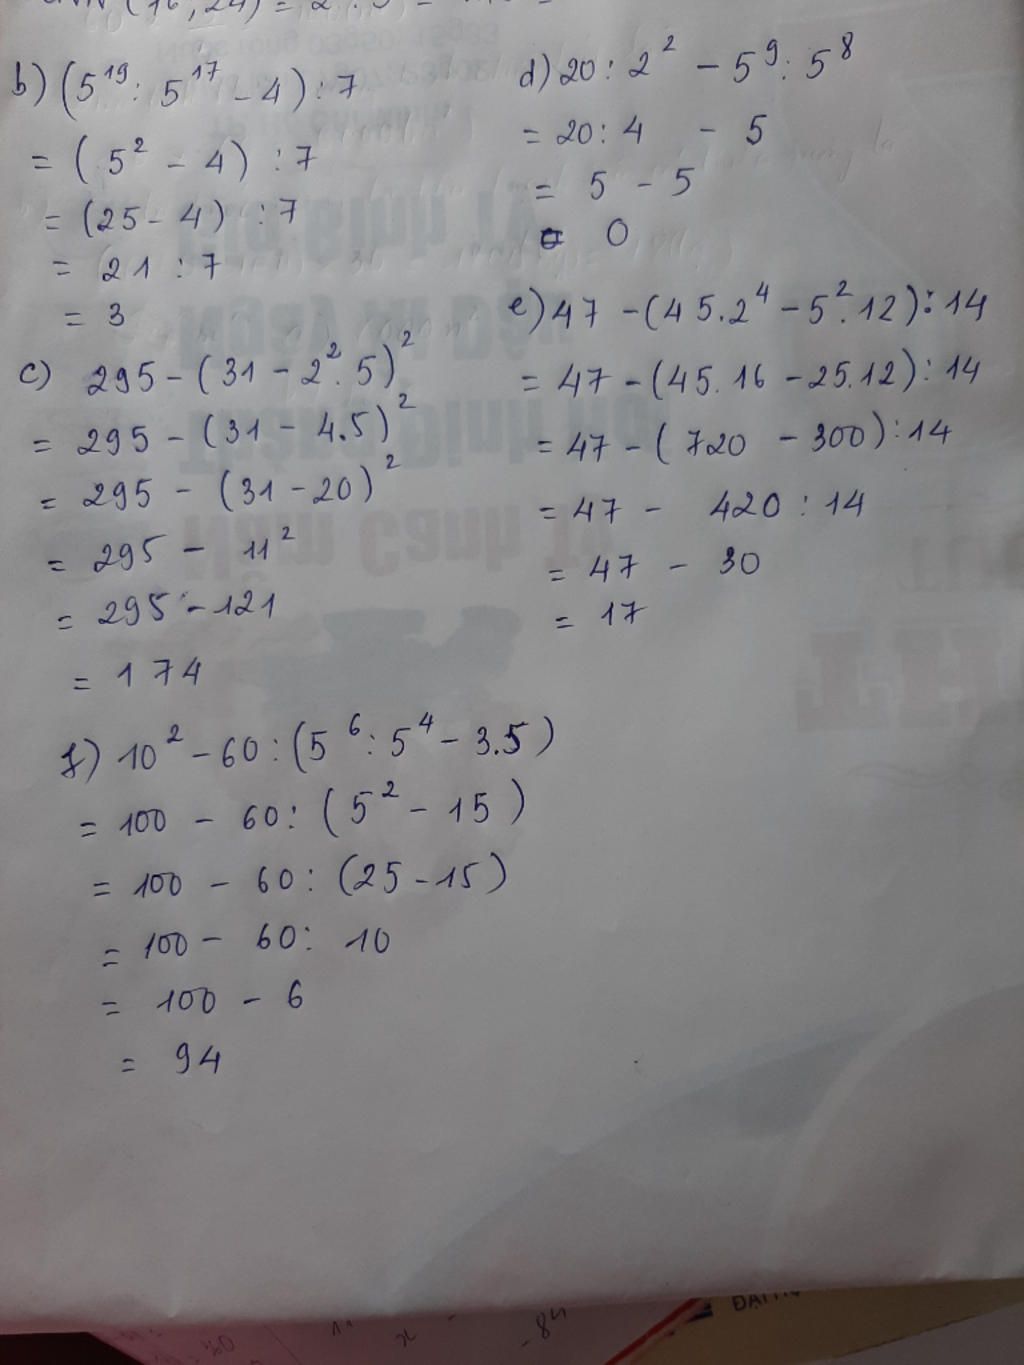 b) (5¹⁹ : 5¹⁷ - 4) : 7
= (5² - 4) : 7
= (25 - 4) : 7
= 21 : 7
= 3
c) 295 - (31 - 2² . 5)²
= 295 - (31 - 4.5)²
= 295 - (31 - 20)²
= 295 - 11²
= 295 - 121
= 174
d) 20 : 2² - 5⁹ : 5⁸
= 20 : 4 - 5
= 5 - 5
= 0
e) 47 - (45.2⁴ - 5².12) : 14
= 47 - (45.16 - 25.12) : 14
= 47 - (720 - 300) : 14
= 47 - 420 : 14
= 47 - 30
= 17
f) 10² - 60 : (5⁶ : 5⁴ - 3.5)
= 100 - 60 : (5² - 15)
= 100 - 60 : (25 - 15)
= 100 - 60 : 10
= 100 - 6
= 94
- 84